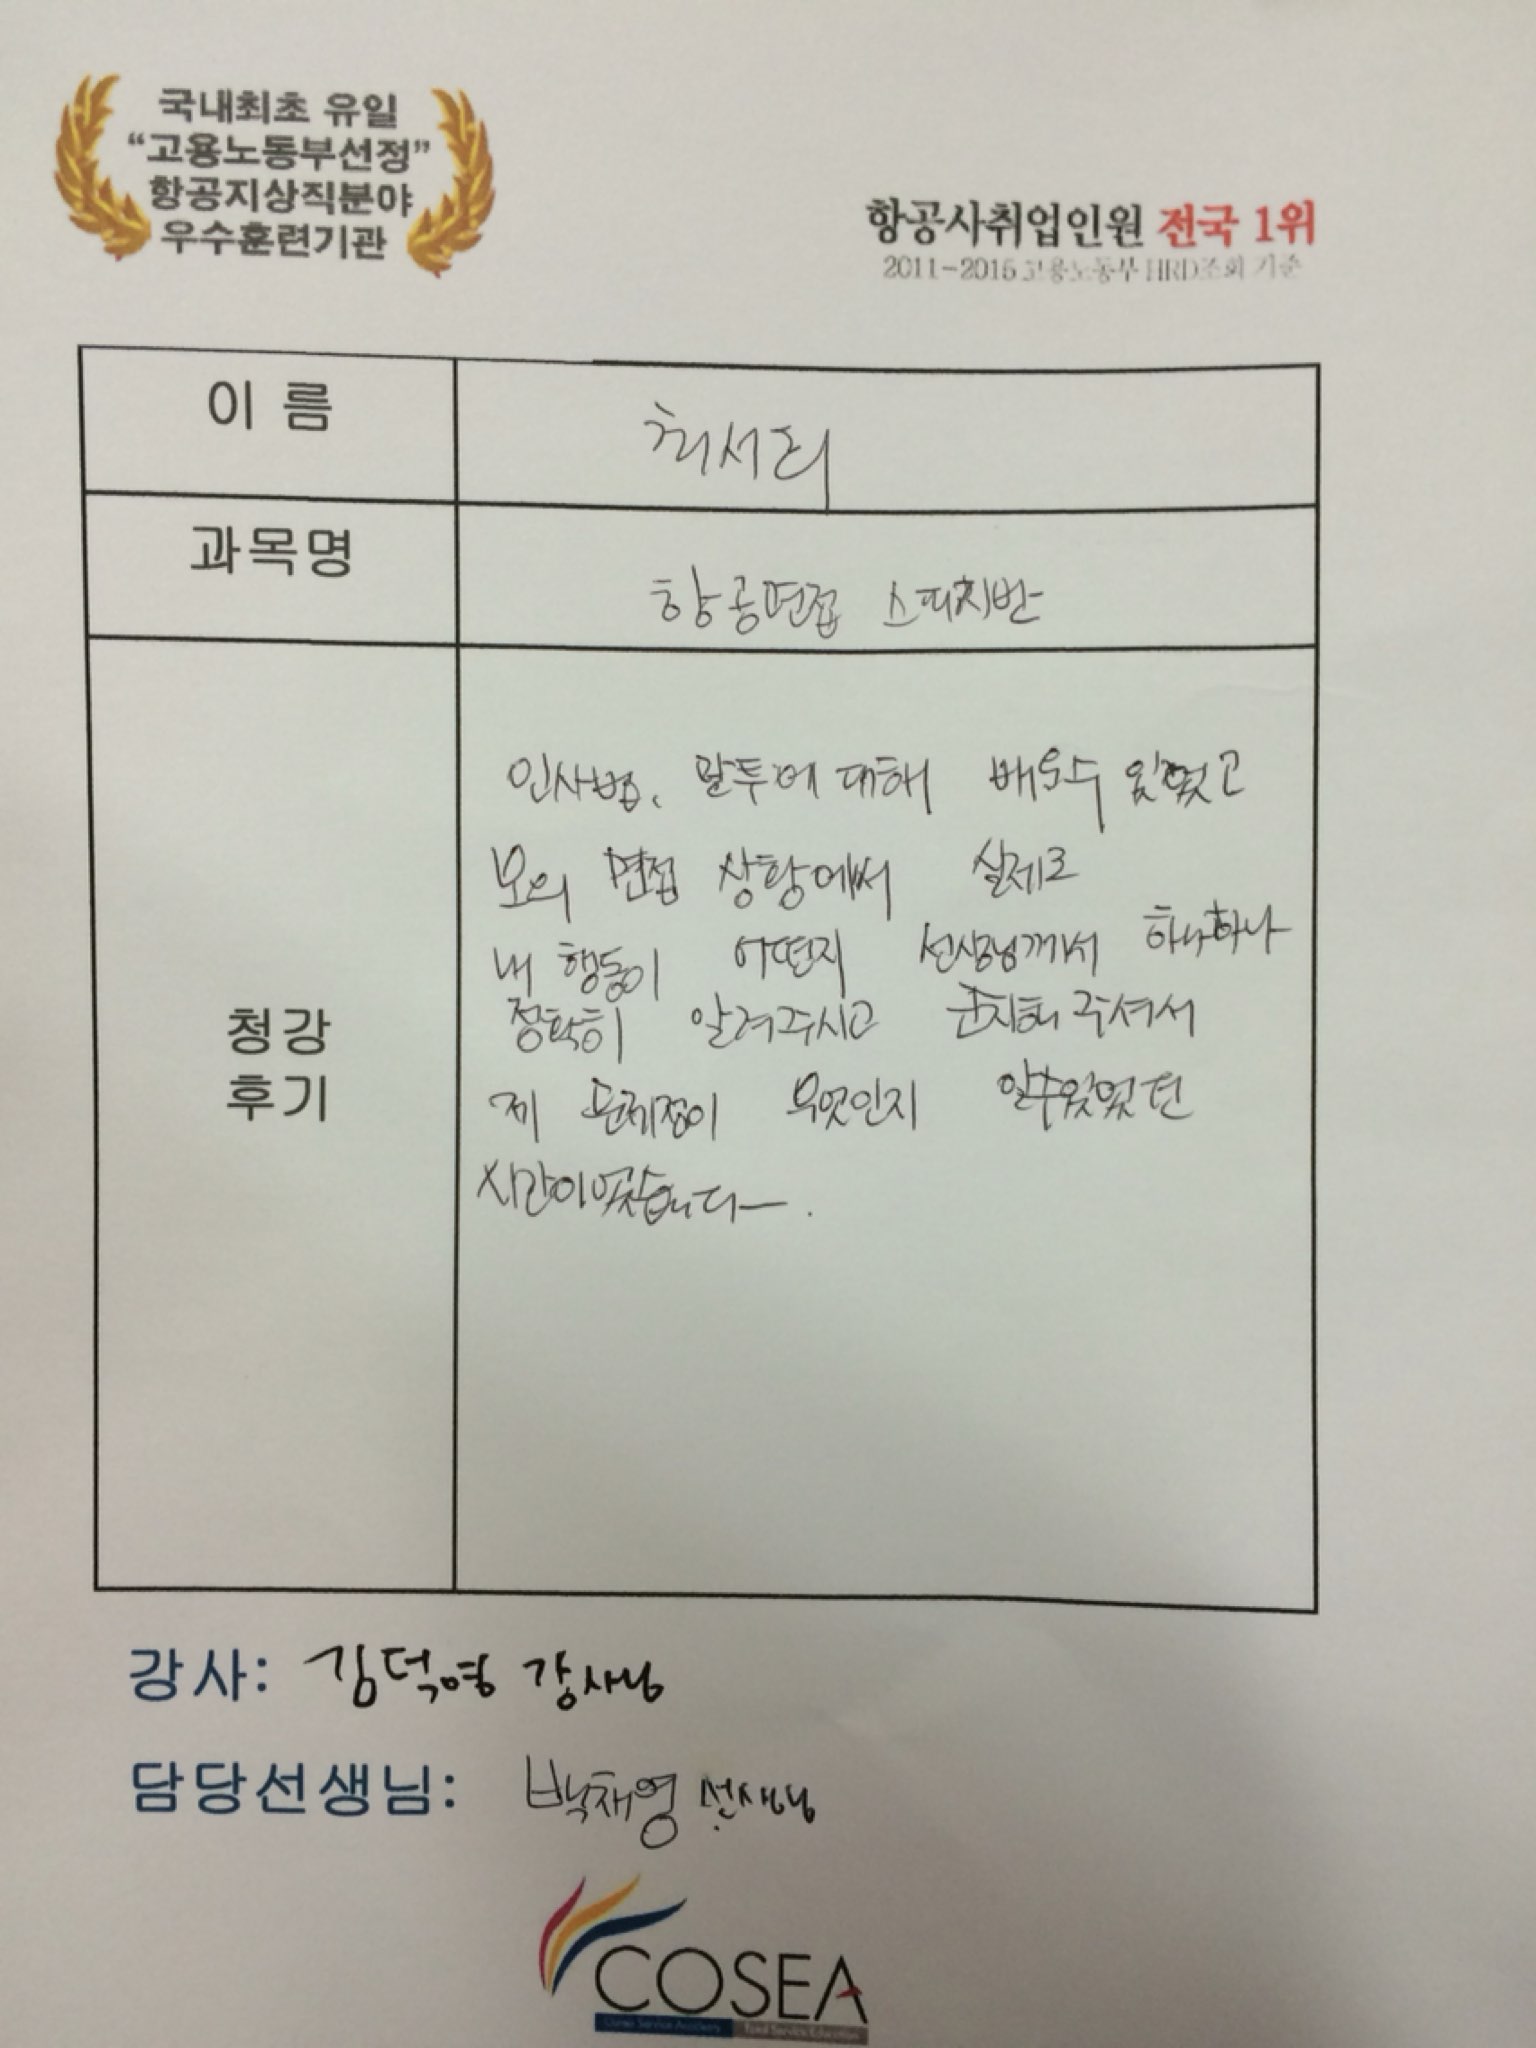 국내최초 유일
“고용노동부선정”
항공지상직분야
우수훈련기관
항공사취업인원 전국 1위
2011-2015 고용노동부 HRD조회 기준
이 름
과목명
항공면접 스피치반
청강
후기
인사법, 말투에 대해 배울수 있었고
모의 면접 상황에서 실제로
내 행동이 어떤지 선생님께서 하나하나
정확히 알려주시고 지해 주셔서
제 문제점이 무엇인지 알수있었던
시간이였습니다.
강사: 김덕영 강사님
담당선생님: 박채영 선생님
COSEA
Korea Service Academy Total Service Education